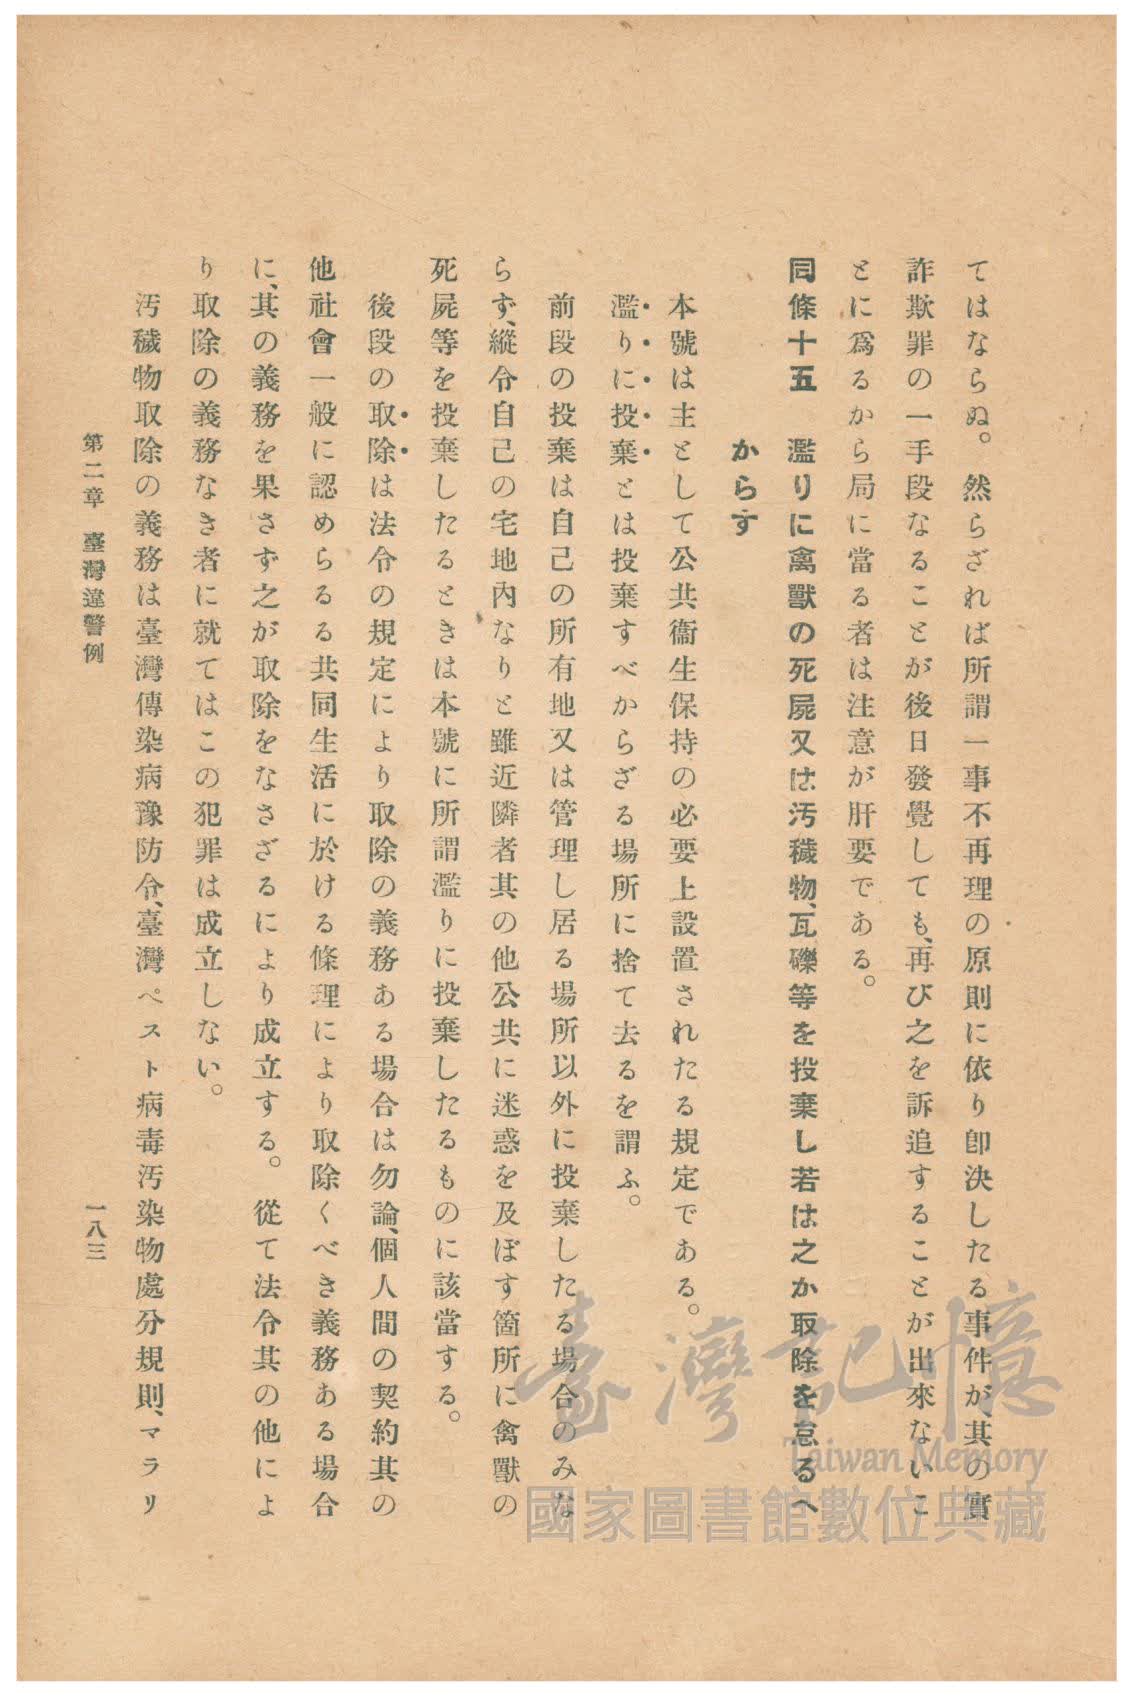 てはならぬ。然らざれば所謂一事不再理の原則に依り卽決したる事件が、其の實
詐欺罪の一手段なることが後日發覺しても、再び之を訴追することが出來ないこ
とに爲るから局に當る者は注意が肝要である。
同條十五　濫りに禽獸の死屍又は汚穢物、瓦礫等を投棄し若は之か取除を怠るへ
からす
本號は主として公共衞生保持の必要上設置されたる規定である。
濫りに投棄とは投棄すべからざる場所に捨て去るを謂ふ。
前段の投棄は自己の所有地又は管理し居る場所以外に投棄したる場合のみな
らず、縱令自己の宅地內なりと雖近隣者其の他公共に迷惑を及ぼす箇所に禽獸の
死屍等を投棄したるときは本號に所謂濫りに投棄したるものに該當する。
後段の取除は法令の規定により取除の義務ある場合は勿論、個人間の契約其の
他社會一般に認めらるる共同生活に於ける條理により取除くべき義務ある場合
に、其の義務を果さず之が取除をなさざるにより成立する。從て法令其の他によ
り取除の義務なき者に就てはこの犯罪は成立しない。
汚穢物取除の義務は臺灣傳染病豫防令、臺灣ペスト病毒汚染物處分規則、マラリ
第二章　臺灣違警例　一八三
臺灣記憶
Taiwan Memory
國家圖書館數位典藏